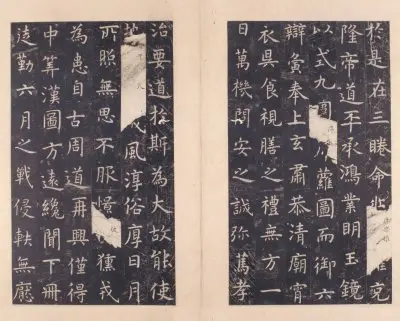 於是在三睠命兆推克
隆帝道丕承鴻業明玉鏡
以式九圍蘿圖而御六
辯夤奉上玄肅恭清廟宵
衣旰食視膳之禮無方一
日萬機問安之誠弥篤孝
治要道於斯為大故能使
地成風淳俗厚日月
所照無思不服憬獯戎
為患自古周道再興僅得
中筭漢圖方遠纔聞下冊
徒勤六月之戰侵軼無厭